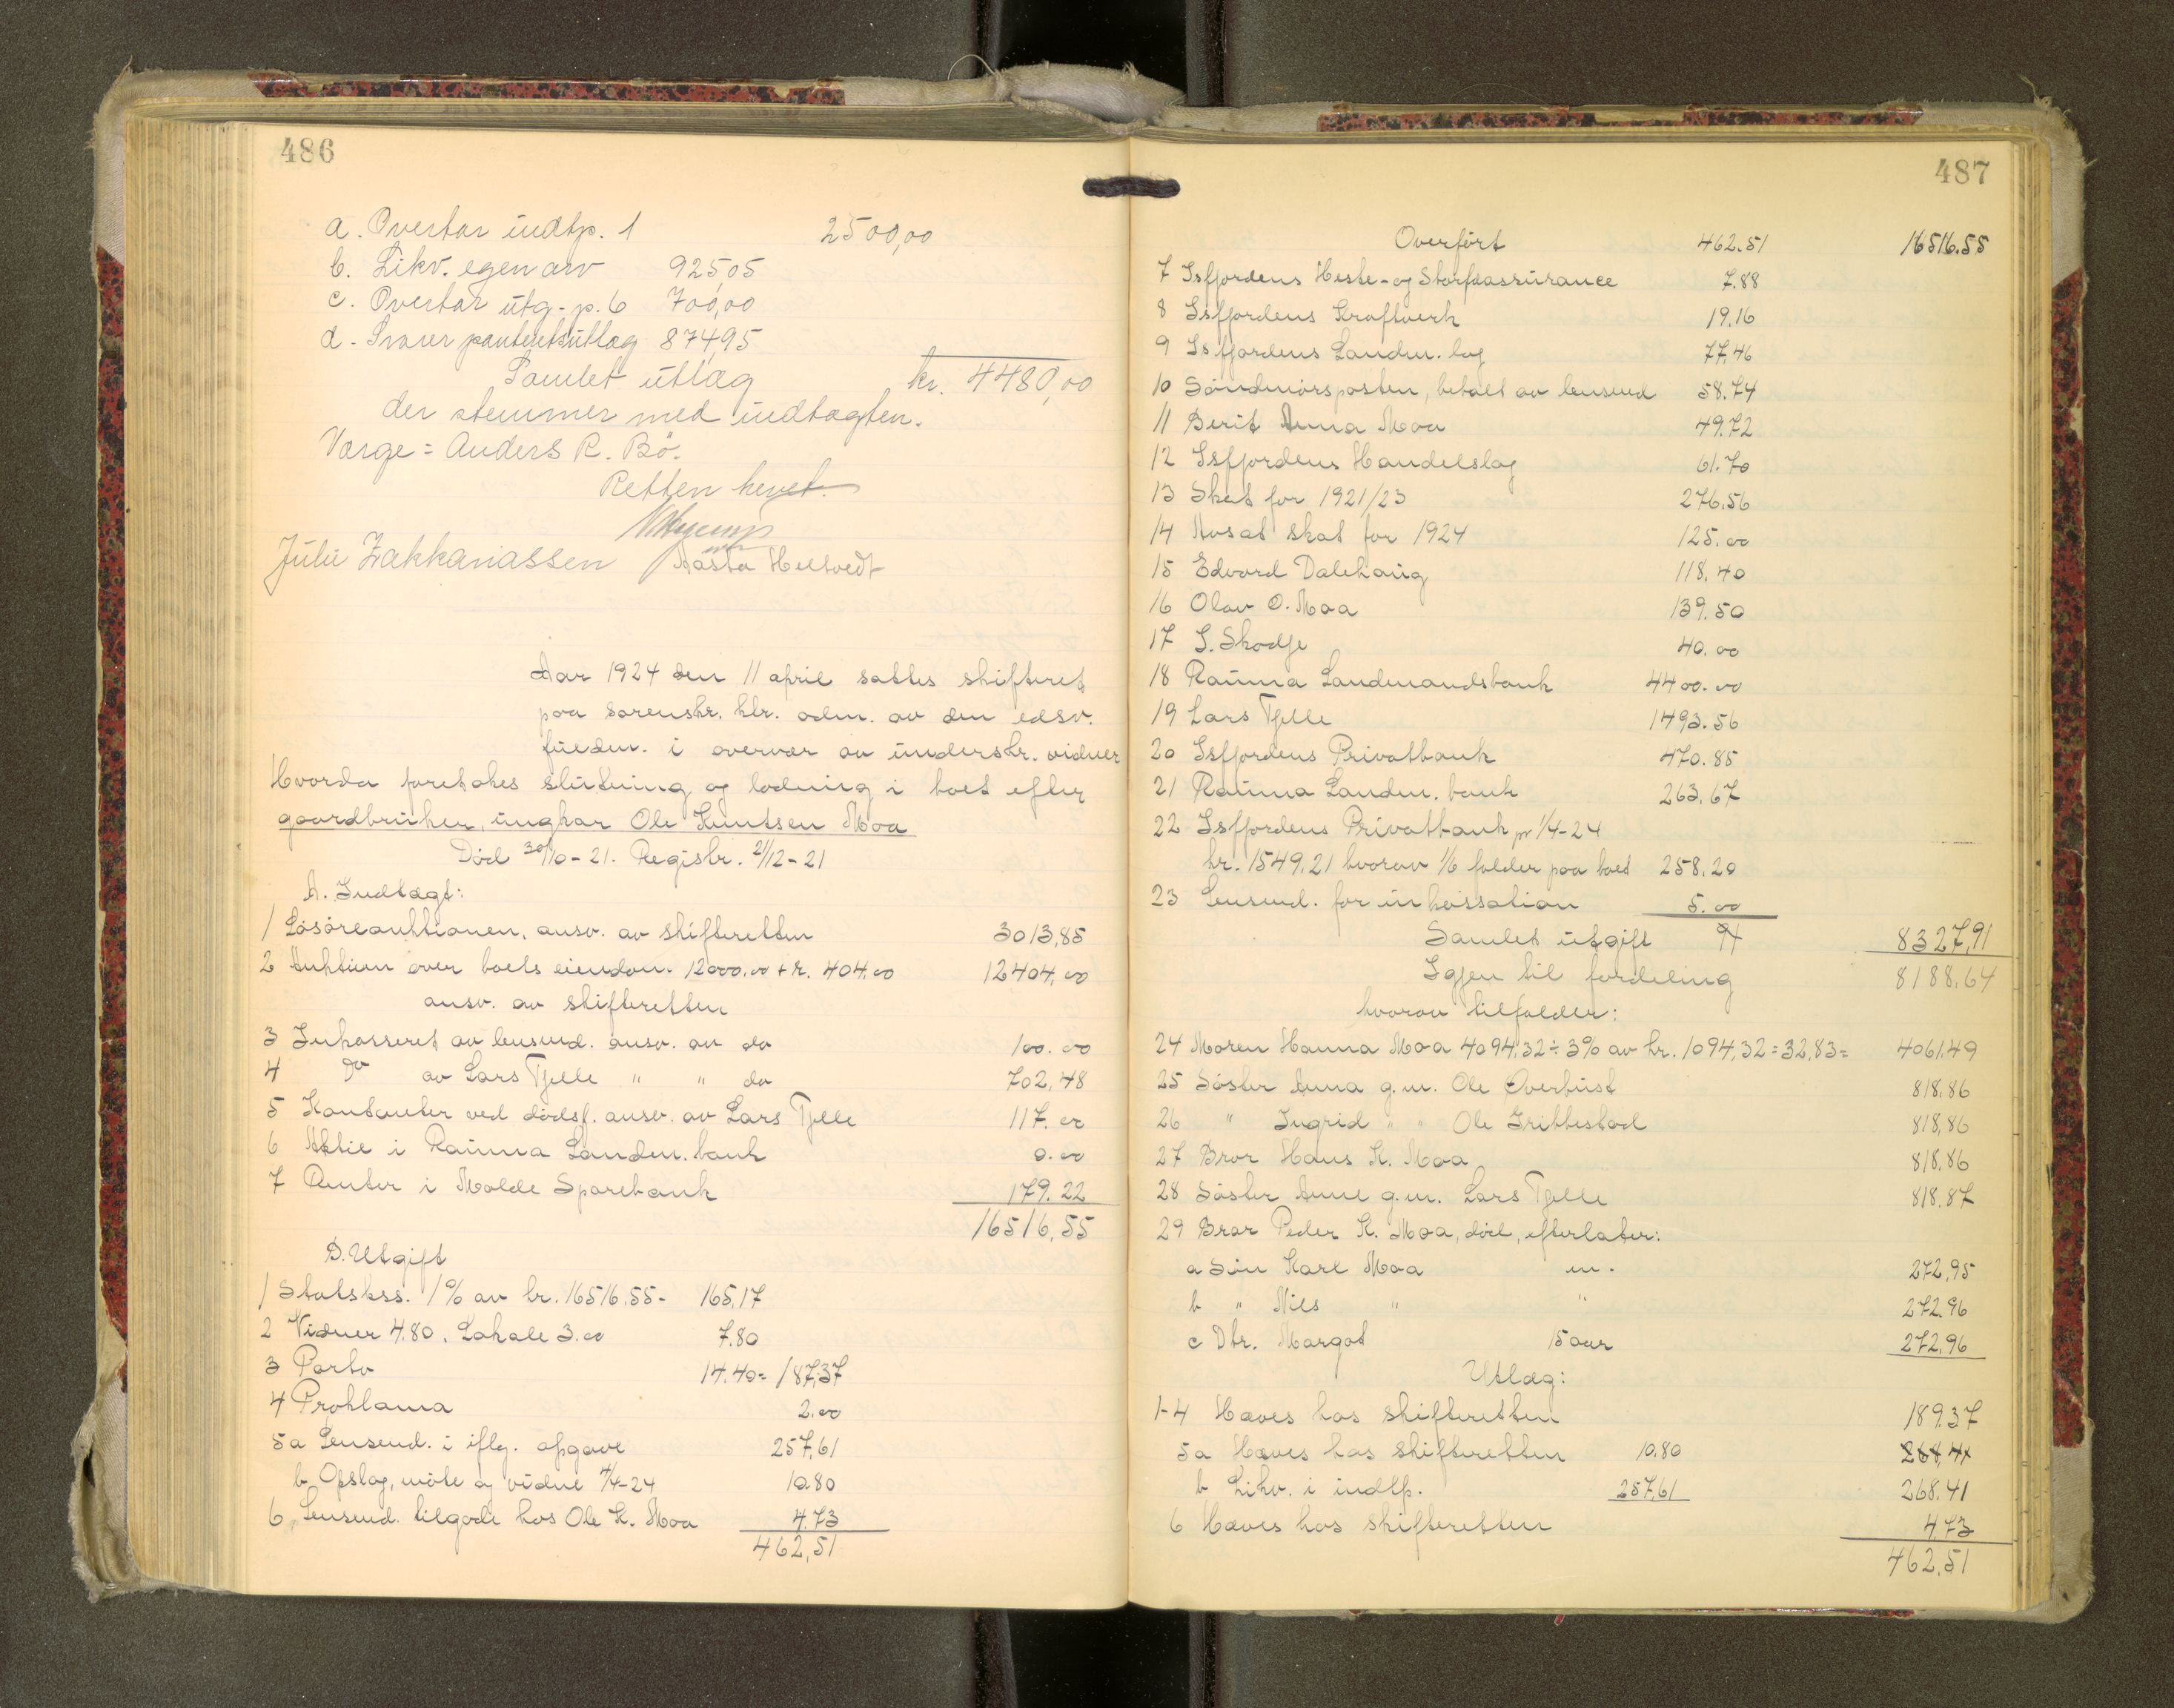 486
a. Overtar indtp. 1 2500,00
b. Likv. egen arv 925,05
c. Overtar utg.-p. 6 700,00
d. Svarer panteutlæg 874,95
Samlet utlæg kr. 4480,00
der stemmer med indtægten.
Værge = Anders R. Bö.
Retten hevet.
Julie Zakkariassen Aasta Heltvedt
Aar 1924 den 11 april sattes skifteret
paa sorenskr. ktr. adm. av den edsv.
fuldm. i overvær av underskr. vidner
Hvorda foretokes slutning og lodning i boet efter
gaardbruker, ungkar Ole Knutsen Moa
Död 30/10-21. Registr. 2/12-21
A. Indtægt:
1 Lösöreauktionen, ansv. av skifteretten 3013,85
2 Auktion over boets eiendom. 12000.00 + r. 404.00 12404,00
ansv. av skifteretten
3 Inkasseret av lensmd. ansv. av do 100.00
4 do av Lars Tjelle " " do 702,48
5 Kontanter ved dödsf. ansv. av Lars Tjelle 117.00
6 Aktie i Rauma Landm. bank 0.00
7 Renter i Molde Sparebank 179.22
16516,55
B. Utgift
1 Statskss. 1% av kr. 16516.55 = 165,17
2 Vidner 4.80. Lokale 3.00 7.80
3 Porto 14.40 = 187,37
4 Proklama 2.00
5a Lensmd. i iflg. opgave 257,61
b Opslag, möte og vidne 4/4-24 10.80
6 Lensmd. tilgode hos Ole K. Moa 4.73
462,51
487
Overfört 462.51 16516.55
7 Isfjordens Heste- og Storfæassurance 7.88
8 Isfjordens Kraftverk 19.16
9 Isfjordens Landm. lag 77,46
10 Söndmörsposten, betalt av lensmd 58.74
11 Berit Anna Moa 49.72
12 Isfjordens Handelslag 61.70
13 Skat for 1921/23 276,56
14 Avsat skat for 1924 125.00
15 Edvard Dalehaug 118,40
16 Olav O. Moa 139.50
17 I. Skodje 40.00
18 Rauma Landmandsbank 4400.00
19 Lars Tjelle 1493.56
20 Isfjordens Privatbank 470.85
21 Rauma Landm. bank 263,67
22 Isfjordens Privatbank pr 1/4-24
kr. 1549,21 hvorav 1/6 falder paa boet 258.20
23 Lensmd. for inkassation 5.00
Samlet utgift 8327,91
Igjen til fordeling 8188.64
hvorav tilfalder:
24 Moren Hanna Moa 4094.32 ÷ 3% av kr. 1094,32 = 32,83 = 4061.49
25 Söster Anna g.m. Ole Överbust 818.86
26 " Ingrid " " Ole Grittestad 818,86
27 Bror Hans K. Moa 818,86
28 Söster Anne g.m. Lars Tjelle 818.87
29 Bror Peder K. Moa, död, efterlater:
a Sön Karl Moa m. 272,95
b " Nils " " 272.96
c Dtr. Margot 15 aar 272,96
Utlæg:
1-4 Hæves hos skifteretten 189.37
5a Hæves hos skifteretten 10.80 268,41
b Likv. i indtp. 257,61 268.41
6 Hæves hos skifteretten 4.73
462.51